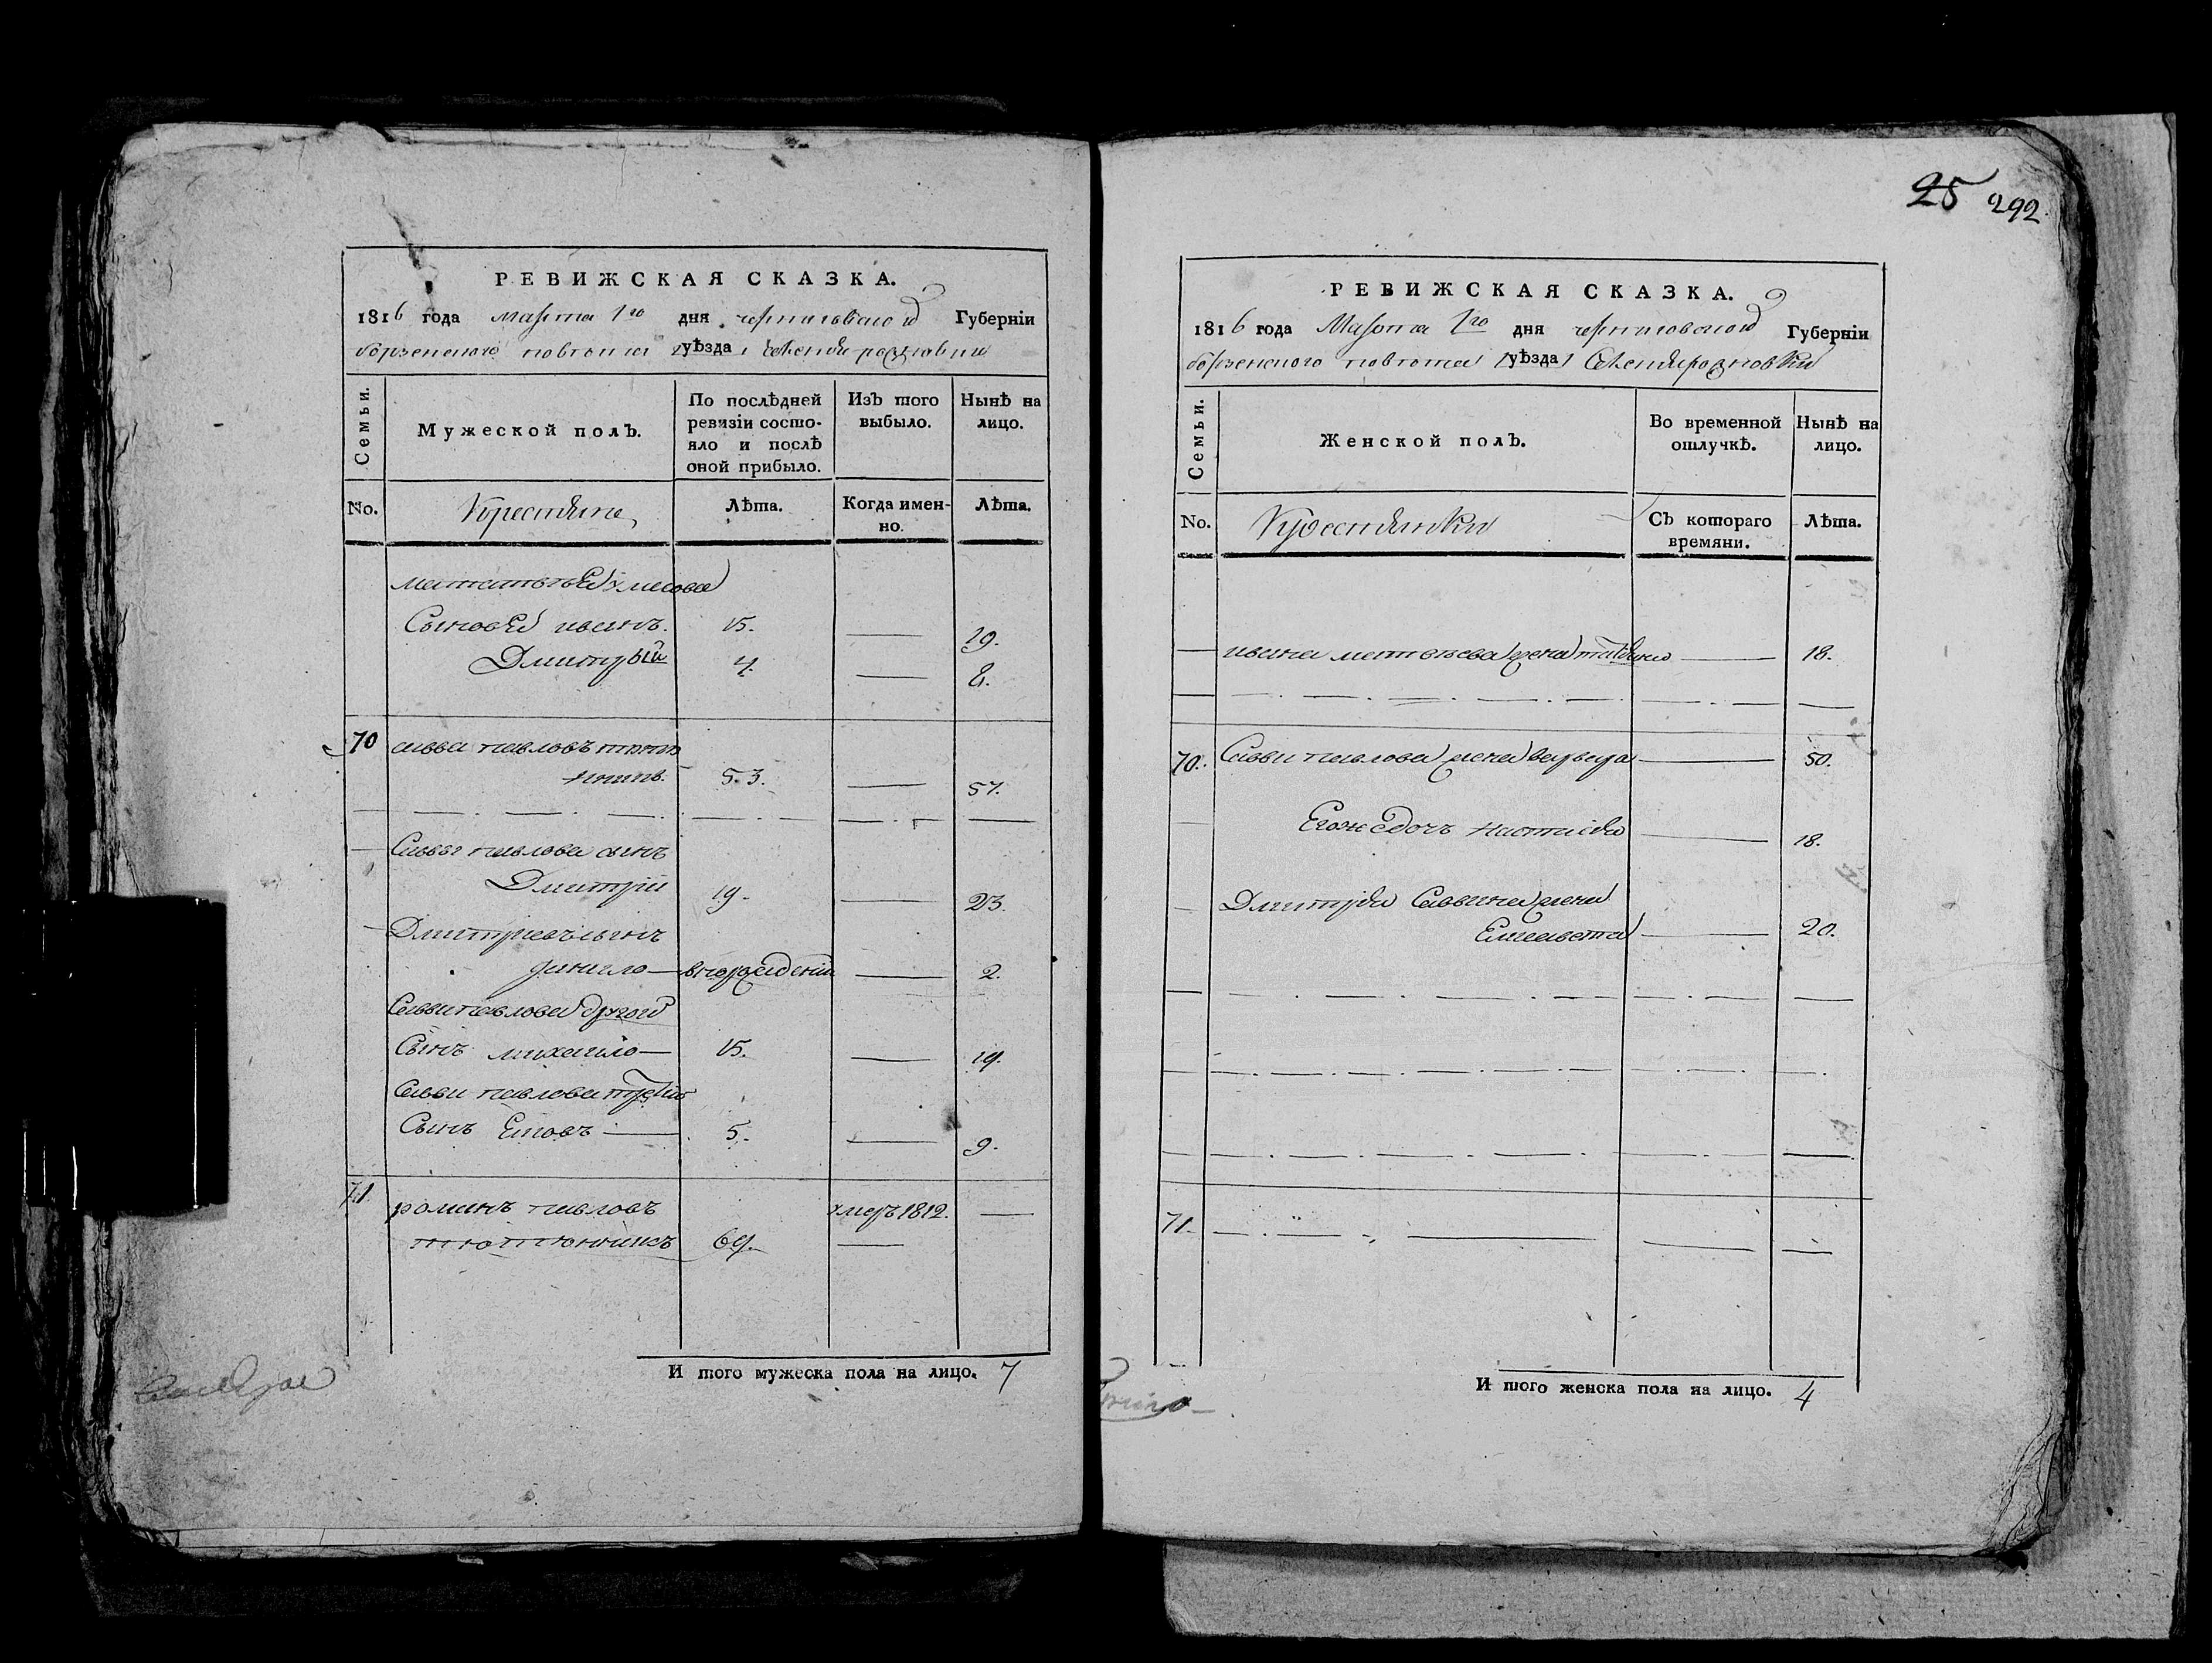 РЕВИЖСКАЯ СКАЗКА.
1816 года Марта 1го дня черниговской Губерніи
борзенского повтота уѣзда
Семьи.
Мужеской полъ.
По послѣдней ревизіи состояло и послѣ оной прибыло.
Изъ того выбыло.
Нынѣ на лицо.
No.
Крестяне
Лѣта.
Когда именно.
Лѣта.
Сыновя иванъ. 15. — 19.
Дмитрый 4. — 8.
70 савва павловъ
53. — 57.
Саввы павлова сынъ
Дмитрій 19. — 23.
Дмитріевъ сынъ
данило — вноворожденій — 2.
Саввы павлова другой
Сынъ михаило — 15. — 19.
Саввы павлова третій
Сынъ — 5. — 9.
71 романъ павловъ умеръ 1812. —
тютюнникъ 69. —
И того мужеска пола на лицо. 7
25 292
РЕВИЖСКАЯ СКАЗКА.
1816 года Марта 1го дня черниговской Губерніи
борзенского повтота уѣзда
Семьи.
Женской полъ.
Во временной отлучкѣ.
Нынѣ на лицо.
No.
Крестянки
Съ котораго времяни.
Лѣта.
— ивана матвѣева жена татяна — 18.
70. Саввы павлова жена варвара — 50.
Егоже дочъ настасія — 18.
Дмитрія Саввина жена
Елисавета — 20.
71.
И того женска пола на лицо. 4